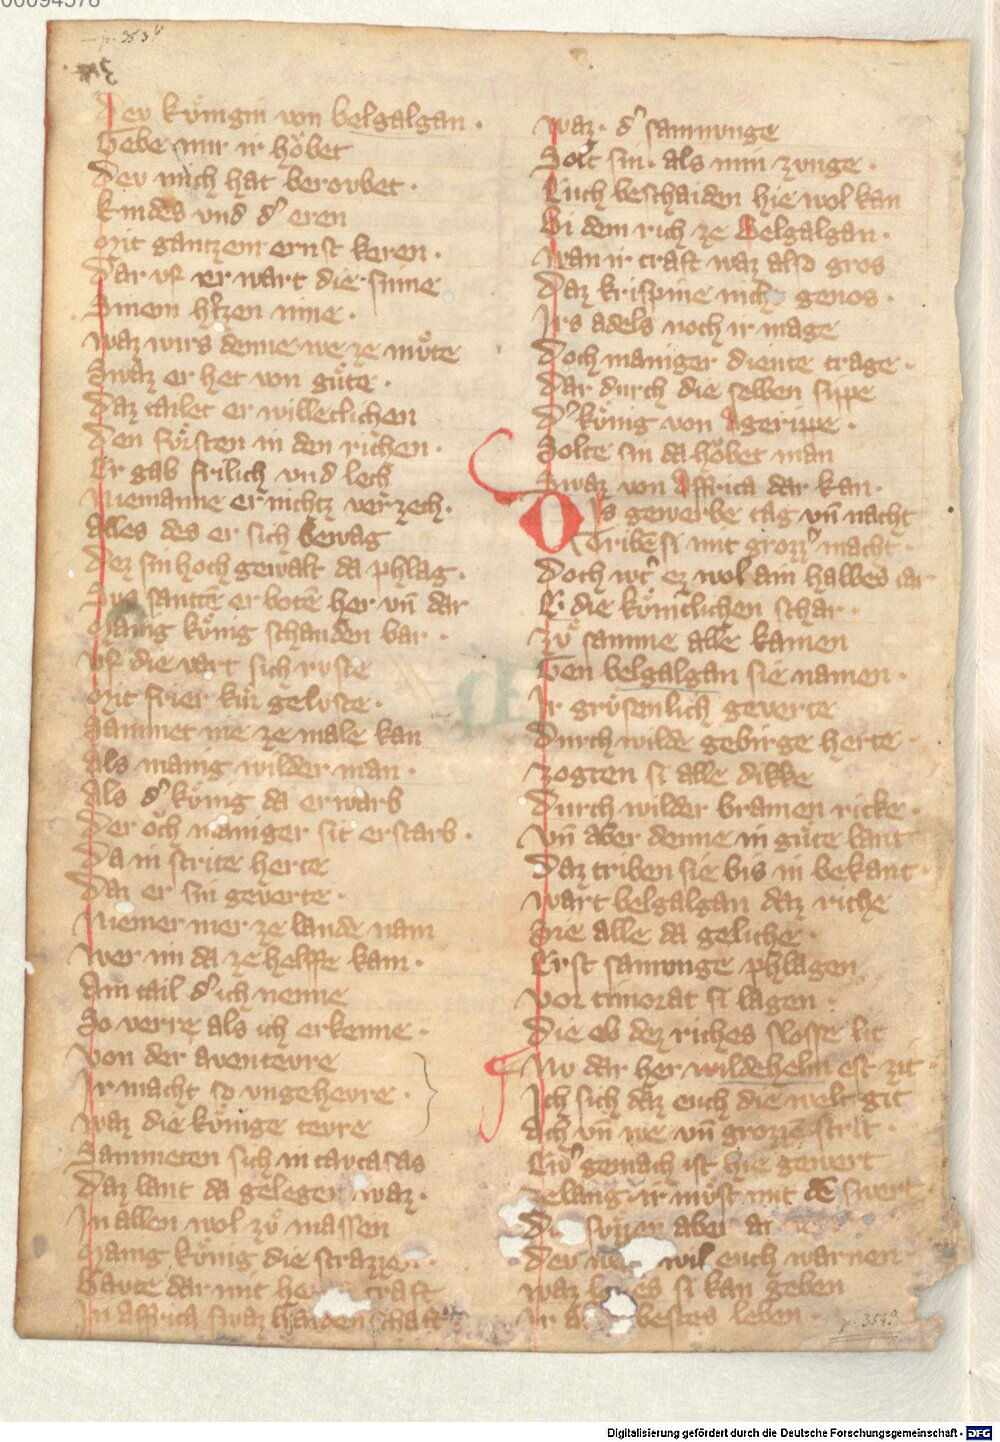 00094576
p. 353b
Der kuͤnigin von belgalgan ·
Gebe mir ir hoͤbet
Der mich hat berovbet ·
kindes vnd d' eren
Mit gantzem ernst keren ·
Dar vf er wart die sinne
Sinem h'tzen inne ·
waz wirs denne we ze muͦte
Swaz er het von guͦte ·
Daz tailet er willeclichen
Den fuͤrsten in den richen ·
Er gab frilich vnd lech
Niemanne er nichtz verzech ·
Alles des er sich bewag
Dez sin hoch gewalt da phlag ·
Sus santē er botē her vn̄ dar
Manig kuͤnig schanden bar ·
vf die vart sich ruste
Mit frier kuͤr geluste ·
Sammet nie ze male kan
Als manig wilder man ·
Als d' kuͤnig da erwarb
Der och maniger sit erstarb ·
Da in strite herte
Daz er sin geverte ·
Niemer mer ze lande nam
wer im da ze helffe kam ·
Ain tail d' ich nenne
So verre als ich erkenne ·
von der aventevre
Ir macht so vngehevre ·
waz die kuͤnige tevre
Sammeten sich in carcasas
Daz lant da gelegen waz ·
In allen wol zuͦ massen
Manig kuͤnig die strazzen ·
Gavte dar mit her craft
In affrica swaz haidenschaft
waz · d' samnunge
Solt sin · als min zunge ·
Euch beschaiden hie wol kan
Bi dem rich ze Belgalgan ·
wan ir craft waz also gros
Daz krispine nicht genos ·
Irs adels noch ir mage
Doch maniger diente trage ·
Dar durch die selben sippe
D' kuͤnig von Agerippe ·
Solte sin da hoͤbet man
Swaz von Affrica dar kan ·
Dis gewerbe tag vn̄ nacht
Tribē si mit grozz' macht ·
Doch wz' ez wol ain halbes iar
E die kuͤnclichen schar ·
zuͦ samme alle kamen
Gen belgalgan sie namen ·
Ir groͤsenlich geverte
Durch wilde gebirge herte ·
zogten si alle dikke
Durch wilder bramen ricke ·
vn̄ aber denne in guͦte lant
Daz triben sie bis in bekant ·
wart belgalgan daz riche
Sie alle da geliche ·
Erst samnunge phlagen
vor timorat si lagen ·
Die ob dez riches slosse lit
Nv dar her wildehelm est zit ·
Ich sich daz euch die welt git
Ach vn̄ we vn̄ grozzē strit ·
Ew' gemach ist hie gewert
ze lang · ir muͤst mit dē swert
Die suͤzzen aber ar
Der we wil euch warnen ·
waz es si kan geben
Ir bestes leben ·
p. 354a
Digitalisierung gefördert durch die Deutsche Forschungsgemeinschaft · DFG